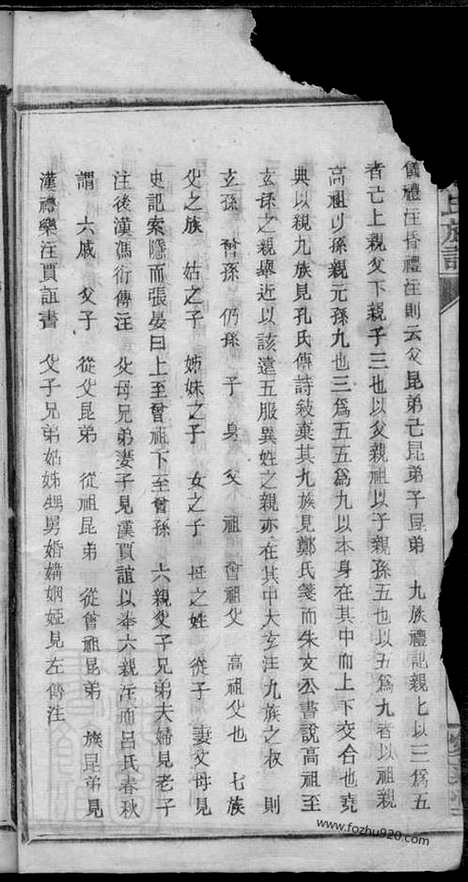 儀禮注昏禮注則云父昆弟己昆弟子昆弟 九族禮記親上以三爲五
者亡上親父下親子三也以父親祖以子親孫五也以五爲九者以祖親
高祖以孫親元孫九也三爲五五爲九以本身在其中而上下交合也堯
典以親九族見孔氏傳詩敍棄其九族見鄭氏箋而朱文公書說高祖至
玄孫之親舉近以該遠五服異姓之親亦在其中大玄注九族之叔 則
玄孫 曾孫 仍孫 子 身 父 祖 曾祖父 高祖父也 七族
父之族 姑之子 姊妹之子 女之子 母之姓 從子 妻父母見
史記索隱而張晏曰上至曾祖下至曾孫 六親父子兄弟夫婦見老子
注後漢馮衍傳注 父母兄弟妻子見漢賈誼以奉六親注而呂氏春秋
謂 六戚 父子 從父昆弟 從祖昆弟 從曾祖昆弟 族昆弟見
漢禮樂注賈誼書 父子兄弟姑姊甥舅婚媾姻婭見左傳注
氏族譜
www.fozhu920.com